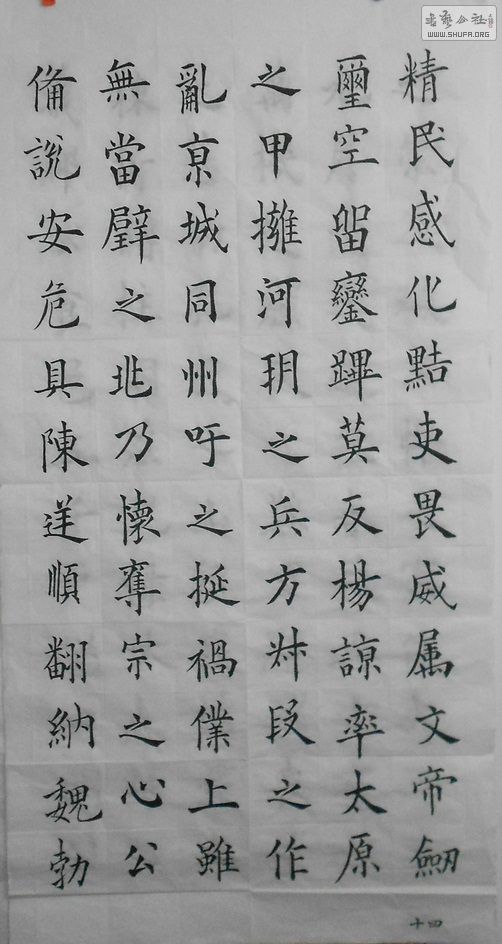 书艺公社
WWW.SHUFA.ORG
精民感化黠吏畏威属文帝劒
璽空留鑾蹕莫反楊諒率太原
之甲擁河玥之兵方叔段之作
亂亰城同州吁之挻禍僕上雖
無當璧之兆乃懷奪宗之心公
俻說安危具陳逆順翻納魏勃
十四